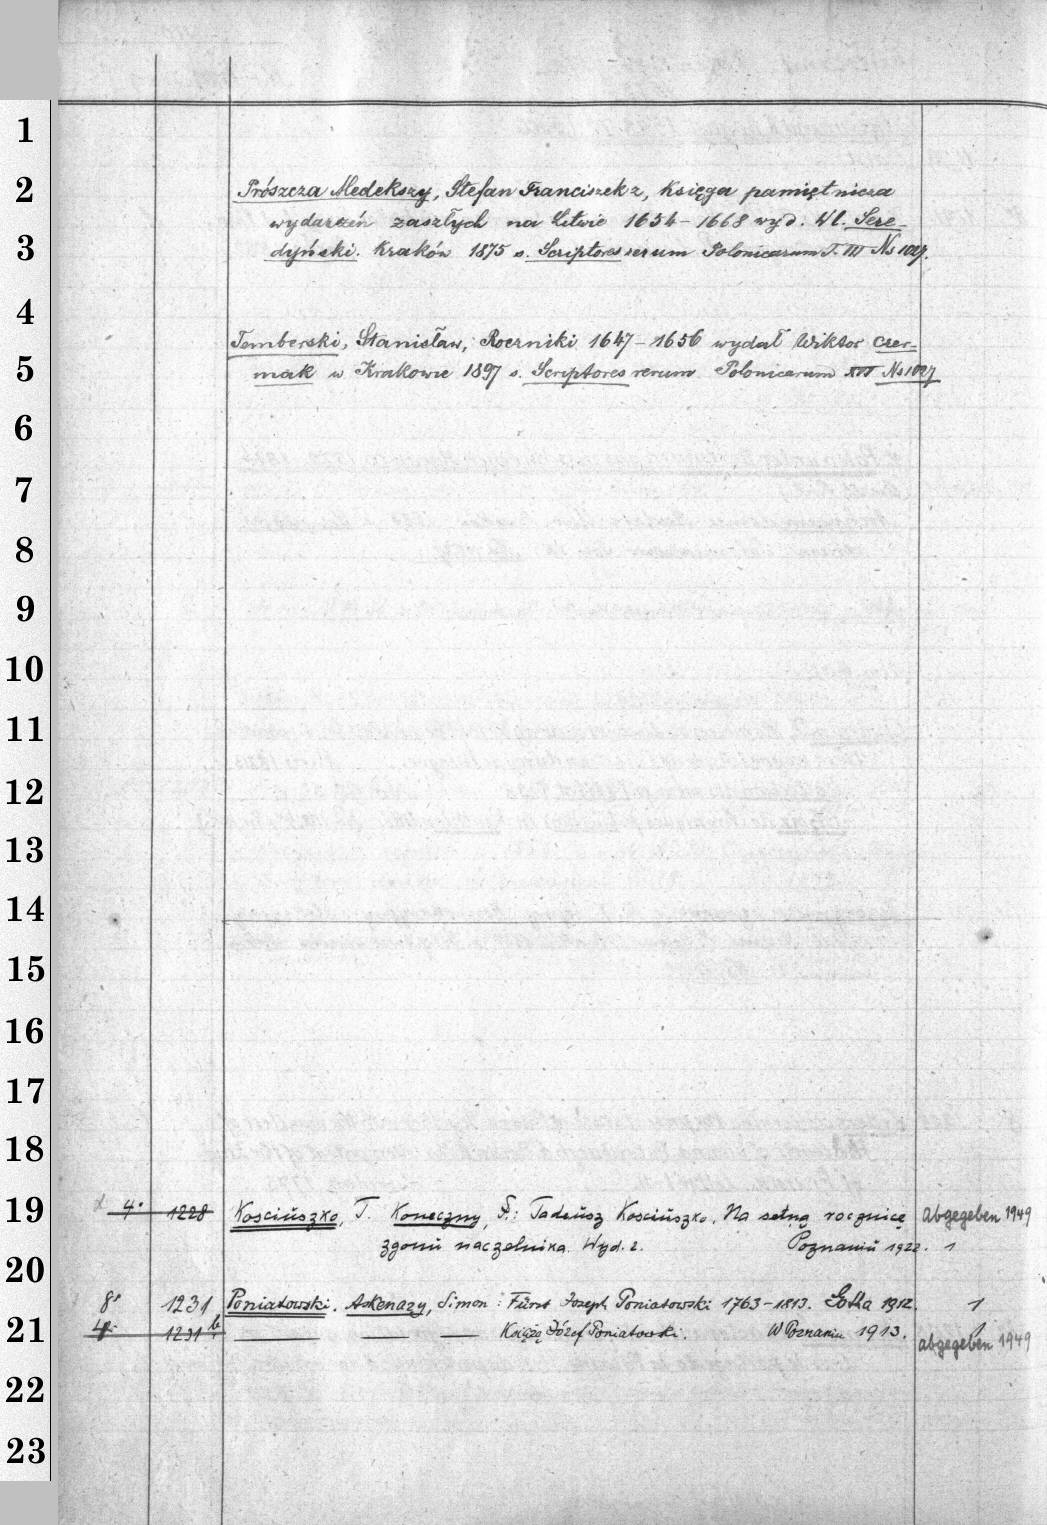 1
2 Prószcza Medekszy, Stefan Franciszek z, Księga pamiętnicza
wydarzeń zaszłych na Litwie 1654-1668 wyd. Wł. Sere-
3 dyński. Kraków 1875 s. Scriptores rerum Polonicarum T. III Ns 1027.
4
Temberski, Stanisław, Roczniki 1647-1656 wydał Wiktor Czer-
5 mak w Krakowie 1897 s. Scriptores rerum Polonicarum XVI Ns 1027
6
7
8
9
10
11
12
13
14
15
16
17
18
19 4° 1228 Kosciuszko, T. Koneczny, F.: Tadeusz Kosciuszko. Na setną rocznicę abgegeben 1949
zgonu naczelnika. Wyd. 2. Poznaniu 1922. 1
20
8° 1231 Poniatowski. Askenazy, Simon: Fürst Joseph Poniatowski 1763-1813. Gotha 1912. 1
21 1231 b — — — Książę Józef Poniatowski. W Poznaniu 1913. 1
abgegeben 1949
22
23